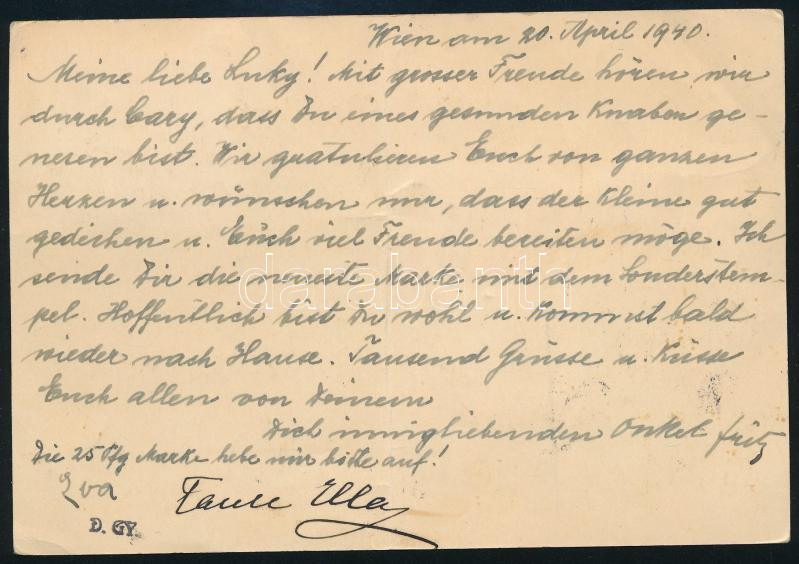 Wien am 20. April 1940.
Meine liebe Luky! Mit grosser Freude hören wir
durch Cary, dass Du eines gesunden Knaben ge-
nesen bist. Wir gratulieren Euch von ganzen
Herzen u. wünschen nur, dass der Kleine gut
gedeihen u. Euch viel Freude bereiten möge. Ich
sende Dir die neueste Marke mit dem Sonderstem-
pel. Hoffentlich bist Du wohl u. kommst bald
wieder nach Hause. Tausend Grüsse u. Küsse
Euch allen von Deinem
Dich innigliebenden Onkel Fritz
Die 25 Pfg Marke hebe mir bitte auf!
Eva
Tante Ella
D. GY.
darabanth